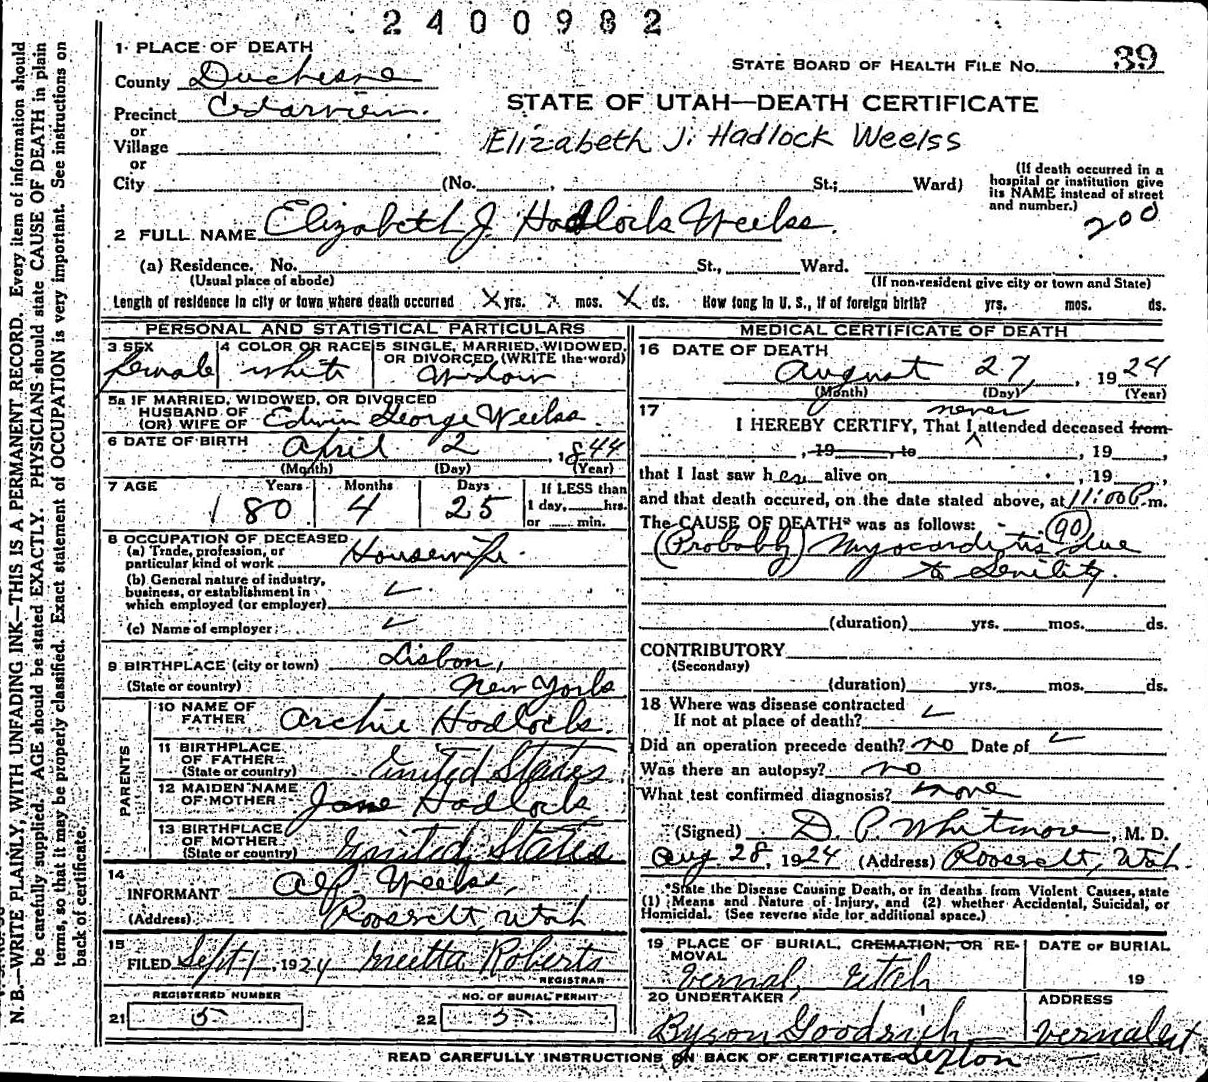 2400982
1 PLACE OF DEATH
STATE BOARD OF HEALTH FILE NO. 39
County Duchesne
Precinct Cedarview.
STATE OF UTAH—DEATH CERTIFICATE
or
Village
Elizabeth J. Hadlock Weelss
or
City (No. , St.; Ward)
(If death occurred in a hospital or institution give its NAME instead of street and number.)
200
2 FULL NAME Elizabeth J. Hadlock Weeks.
(a) Residence. No. St., Ward.
(Usual place of abode) (If non-resident give city or town and State)
Length of residence in city or town where death occurred X yrs. X mos. X ds. How long in U. S., if of foreign birth? yrs. mos. ds.
PERSONAL AND STATISTICAL PARTICULARS
3 SEX
female
4 COLOR OR RACE
white
5 SINGLE, MARRIED, WIDOWED, OR DIVORCED (WRITE the word)
Widow
5a IF MARRIED, WIDOWED, OR DIVORCED
HUSBAND OF
(OR) WIFE OF Edwin George Weeks.
6 DATE OF BIRTH
April 2, 1844
(Month) (Day) (Year)
7 AGE Years Months Days If LESS than
80 4 25 1 day, hrs.
or min.
8 OCCUPATION OF DECEASED
(a) Trade, profession, or
particular kind of work Housewife.
(b) General nature of industry,
business, or establishment in
which employed (or employer)
(c) Name of employer
9 BIRTHPLACE (city or town) Lisbon,
(State or country) New York
PARENTS
10 NAME OF
FATHER Archie Hadlock.
11 BIRTHPLACE
OF FATHER
(State or country) United States
12 MAIDEN NAME
OF MOTHER Jane Hadlock
13 BIRTHPLACE
OF MOTHER
(State or country) United States
14
INFORMANT Alf. Weeks,
(Address) Roosevelt, Utah
15
FILED Sept 1, 1924 Roberts
REGISTRAR
REGISTERED NUMBER
21 5
NO. OF BURIAL PERMIT
22 5
MEDICAL CERTIFICATE OF DEATH
16 DATE OF DEATH
August 27, 1924
(Month) (Day) (Year)
17 never
I HEREBY CERTIFY, That I attended deceased from
, 19 , to , 19 ,
that I last saw her alive on , 19 ,
and that death occured, on the date stated above, at 11:00 P.m.
The CAUSE OF DEATH* was as follows: 90
(Probably) Myocarditis due
to Senility.
(duration) yrs. mos. ds.
CONTRIBUTORY
(Secondary)
(duration) yrs. mos. ds.
18 Where was disease contracted
If not at place of death?
Did an operation precede death? no Date of
Was there an autopsy? no
What test confirmed diagnosis? none
(Signed) D. P. Whitmore, M. D.
Aug 28, 1924 (Address) Roosevelt, Utah.
*State the Disease Causing Death, or in deaths from Violent Causes, state
(1) Means and Nature of Injury, and (2) whether Accidental, Suicidal, or
Homicidal. (See reverse side for additional space.)
19 PLACE OF BURIAL, CREMATION, OR REMOVAL
Vernal, Utah
DATE OF BURIAL
19
20 UNDERTAKER
Byron Goodrich
Sexton
ADDRESS
Vernal Ut
READ CAREFULLY INSTRUCTIONS ON BACK OF CERTIFICATE.
N. B.—WRITE PLAINLY, WITH UNFADING INK—THIS IS A PERMANENT RECORD. Every item of information should
be carefully supplied. AGE should be stated EXACTLY. PHYSICIANS should state CAUSE OF DEATH in plain
terms, so that it may be properly classified. Exact statement of OCCUPATION is very important. See instructions on
back of certificate.